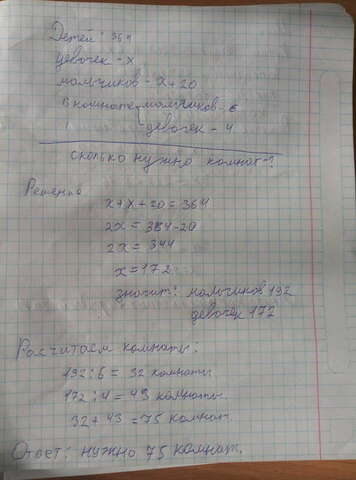 Детей: 364
девочек - х
мальчиков - х + 20
В комнате мальчиков - 6
девочек - 4
сколько нужно комнат?
Решение
х + х + 20 = 364
2х = 364 - 20
2х = 344
х = 172
значит: мальчиков 192
девочек 172
Расчитаем комнаты:
192 : 6 = 32 комнаты
172 : 4 = 43 комнаты.
32 + 43 = 75 комнат.
Ответ: нужно 75 комнат.